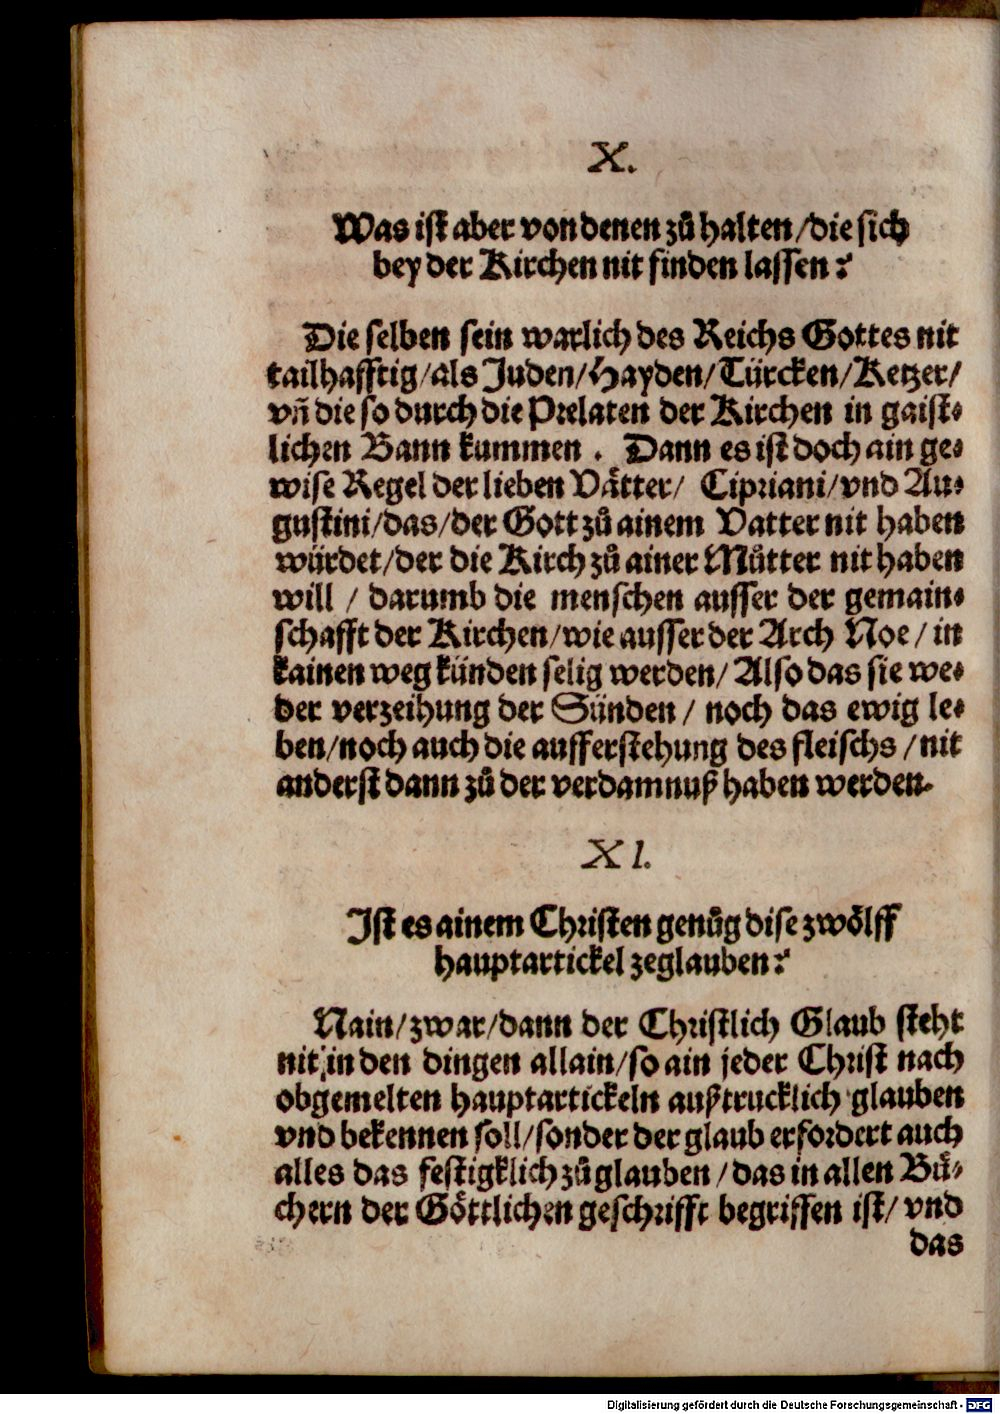 X.
Was ist aber von denen zů halten/die sich
bey der Kirchen nit finden lassen?
Die selben sein warlich des Reichs Gottes nit
tailhafftig/als Juden/Hayden/Türcken/Ketzer/
vñ die so durch die Prelaten der Kirchen in gaist⸗
lichen Bann kummen. Dann es ist doch ain ge⸗
wise Regel der lieben Vätter/ Cipriani/vnd Au⸗
gustini/das/der Gott zů ainem Vatter nit haben
würdet/der die Kirch zů ainer Můtter nit haben
will / darumb die menschen ausser der gemain⸗
schafft der Kirchen/wie ausser der Arch Noe/in
kainen weg künden selig werden/Also das sie we⸗
der verzeihung der Sünden / noch das ewig le⸗
ben/noch auch die aufferstehung des fleischs/nit
anderst dann zů der verdamnuß haben werden.
XI.
Ist es ainem Christen genůg dise zwölff
hauptartickel zeglauben?
Nain/zwar/dann der Christlich Glaub steht
nit in den dingen allain/so ain jeder Christ nach
obgemelten hauptartickeln außtrucklich glauben
vnd bekennen soll/sonder der glaub erfordert auch
alles das festigklich zů glauben/das in allen Bü⸗
chern der Göttlichen geschrifft begriffen ist/vnd
das
Digitalisierung gefördert durch die Deutsche Forschungsgemeinschaft - DFG